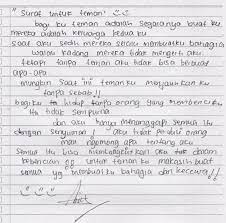 "Surat untuk teman"
bagi ku teman adalah segalanya buat ku
mereka adalah keluarga kedua ku
saat aku sedih mereka selalu membuatku bahagia
walau kadang mereka tidak mengerti aku
tetapi tanpa teman aku tidak bisa berbuat
apa-apa
mungkin saat ini teman ku menjauhkan ku
tanpa sebab!!
bagi ku hidup tanpa orang yang membenci ku
itu tidak sempurna
dan aku hanya menanggapi semua itu
dengan senyuman! aku tidak perduli orang
mau ngomong apa tentang aku
semua itu bisa membangkitkan aku dalam
kebencian untuk teman ku makasih buat
semua yg membuatku bahagia dan kecewa!!